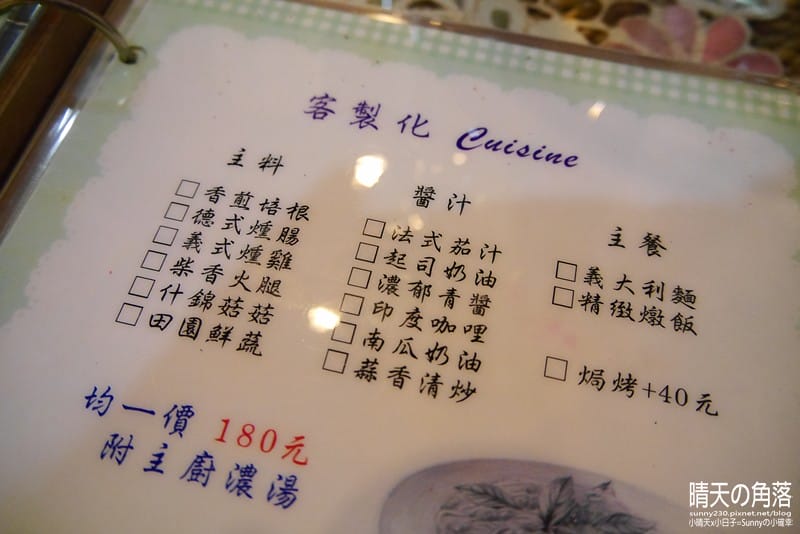 客製化 Cuisine
主料
□香煎培根
□德式燻腸
□義式燻雞
□柴香火腿
□什錦菇菇
□田園鮮蔬
醬汁
□法式茄汁
□起司奶油
□濃郁青醬
□印度咖哩
□南瓜奶油
□蒜香清炒
主餐
□義大利麵
□精緻燉飯
□焗烤+40元
均一價 180元
附主廚濃湯
晴天の角落
sunny230.pixnet.net/blog
小晴天x小日子=Sunnyの小確幸